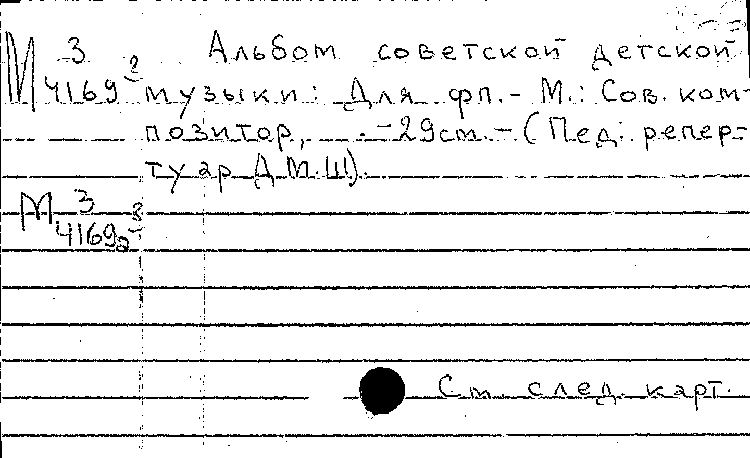 М 3/4169 Альбом советской детской
музыки: Для фп. - М.: Сов. ком-
позитор, . - 29см. - (Пед. репер-
туар ДМШ).
М 3/4169а
См. след. карт.